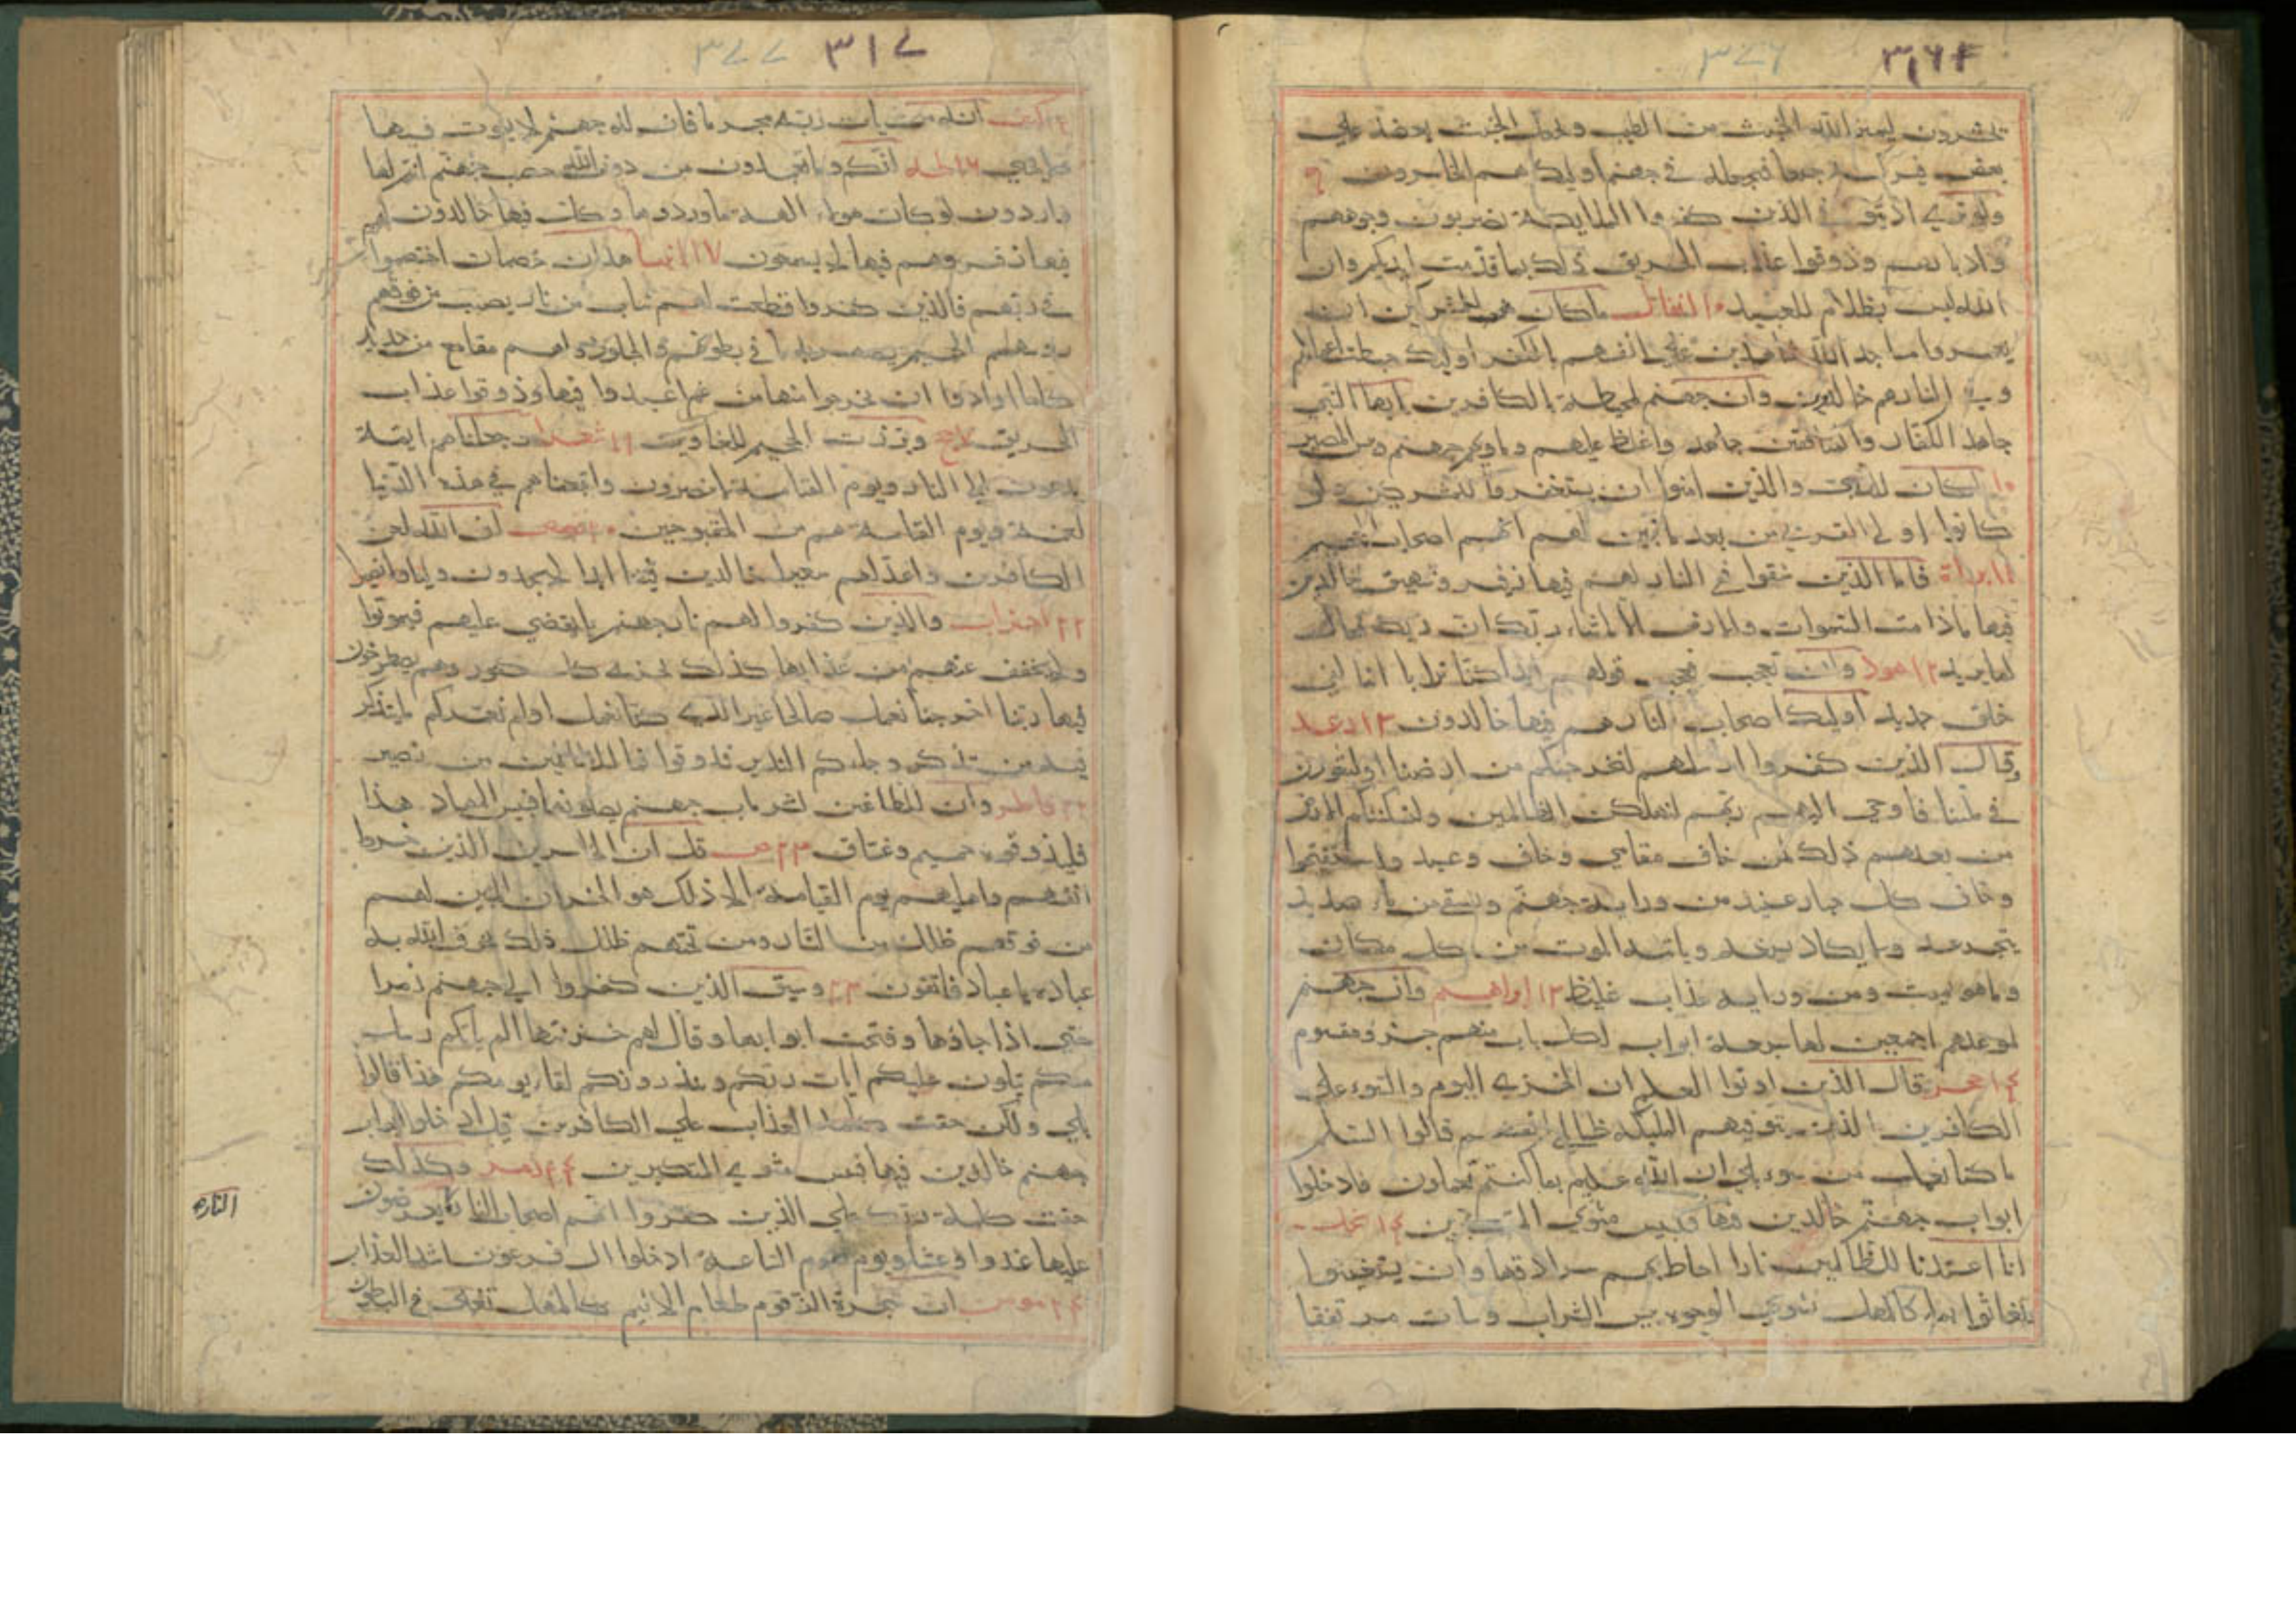 يحشرون ليميز الله الخبيث من الطيب ويجعل الخبيث بعضه علي
بعض فيركمه جميعا فيجعله في جهنم اوليك هم الخاسرون ٩
ولو تري اذ يتوفي الذين كفروا الملايكة يضربون وجوههم
وادبارهم وذوقوا عذاب الحريق ذلك بما قدمت ايديكم وان
الله ليس بظلام للعبيد ١٠ انفال ما كان للمشركين ان
يعمروا مساجد الله شاهدين علي انفسهم بالكفر اوليك حبطت اعمالهم
وفي النار هم خالدون وان جهنم لمحيطة بالكافرين يا ايها النبي
جاهد الكفار والمنافقين جاهد واغلظ عليهم وماويهم جهنم وبيس المصير
١٠ ما كان للنبي والذين امنوا ان يستغفروا للمشركين ولو
كانوا اولي القربي من بعد ما تبين لهم انهم اصحاب الجحيم
١١ براة فاما الذين شقوا في النار لهم فيها زفير وشهيق خالدين
فيها ما دامت السموات والارض الا ما شاء ربك ان ربك فعال
لما يريد ١٢ هود وان تعجب فعجب قولهم ايذا كنا ترابا اننا لفي
خلق جديد اوليك اصحاب النار هم فيها خالدون ١٣ رعد
وقال الذين كفروا لرسلهم لنخرجنكم من ارضنا او لتعودن
في ملتنا فاوحي اليهم ربهم لنهلكن الظالمين ولنسكننكم الارض
من بعدهم ذلك لمن خاف مقامي وخاف وعيد واستفتحوا
وخاب كل جبار عنيد من ورايه جهنم ويسقي من ماء صديد
يتجرعه ولا يكاد يسيغه وياتيه الموت من كل مكان
وما هو بميت ومن ورايه عذاب غليظ ١٣ ابراهيم وان جهنم
لموعدهم اجمعين لها سبعة ابواب لكل باب منهم جزو مقسوم
١٤ حجر قال الذين اوتوا العلم ان الخزي اليوم والسوء علي
الكافرين الذين تتوفيهم المليكة ظالمي انفسهم فالقوا السلم
ما كنا نعمل من سوء بلي ان الله عليم بما كنتم تعملون فادخلوا
ابواب جهنم خالدين فيها فلبيس مثوي المتكبرين ١٤ نحل
انا اعتدنا للظالمين نارا احاط بهم سرادقها وان يستغيثوا
يغاثوا بماء كالمهل يشوي الوجوه بيس الشراب وساءت مرتفقا
كهف انه من يات ربه مجرما فان له جهنم لا يموت فيها
ولا يحيي ١٦ طه انكم وما تعبدون من دون الله حصب جهنم انتم لها
واردون لو كان هولاء الهة ما وردوها وكل فيها خالدون لهم
فيها زفير وهم فيها لا يسمعون ١٧ انبيا هذان خصمان اختصموا
في ربهم فالذين كفروا قطعت لهم ثياب من نار يصب من فوق
روسهم الحميم يصهر به ما في بطونهم والجلود ولهم مقامع من حديد
كلما ارادوا ان يخرجوا منها من غم اعيدوا فيها وذوقوا عذاب
الحريق ١٧ حج وبرزت الجحيم للغاوين ١٩ شعرا وجعلناهم ايمة
يدعون الي النار ويوم القيامة لا ينصرون واتبعناهم في هذه الدنيا
لعنة ويوم القيامة هم من المقبوحين ٢٠ قصص ان الله لعن
الكافرين واعد لهم سعيرا خالدين فيها ابدا لا يجدون وليا ولا نصيرا
٢٢ احزاب والذين كفروا لهم نار جهنم لا يقضي عليهم فيموتوا
ولا يخفف عنهم من عذابها كذلك نجزي كل كفور وهم يصطرخون
فيها ربنا اخرجنا نعمل صالحا غير الذي كنا نعمل اولم نعمركم ما يتذكر
فيه من تذكر وجاءكم النذير فذوقوا فما للظالمين من نصير
٢٢ فاطر وان للطاغين لشر ماب جهنم يصلونها فبيس المهاد هذا
فليذوقوه حميم وغساق ٢٣ ص قل ان الخاسرين الذين خسروا
انفسهم واهليهم يوم القيامة الا ذلك هو الخسران المبين لهم
من فوقهم ظلل من النار ومن تحتهم ظلل ذلك يخوف الله به
عباده يا عباد فاتقون ٢٣ وسيق الذين كفروا الي جهنم زمرا
حتي اذا جاؤها وفتحت ابوابها وقال لهم خزنتها الم ياتكم رسل
منكم يتلون عليكم ايات ربكم وينذرونكم لقاء يومكم هذا قالوا
بلي ولكن حقت كلمة العذاب علي الكافرين قيل ادخلوا ابواب
جهنم خالدين فيها فبيس مثوي المتكبرين ٢٤ زمر وكذلك
حقت كلمة ربك علي الذين كفروا انهم اصحاب النار يعرضون
عليها غدوا وعشيا ويوم تقوم الساعة ادخلوا ال فرعون اشد العذاب
٢٤ مومن ان شجرة الزقوم طعام الاثيم كالمهل تغلي في البطون